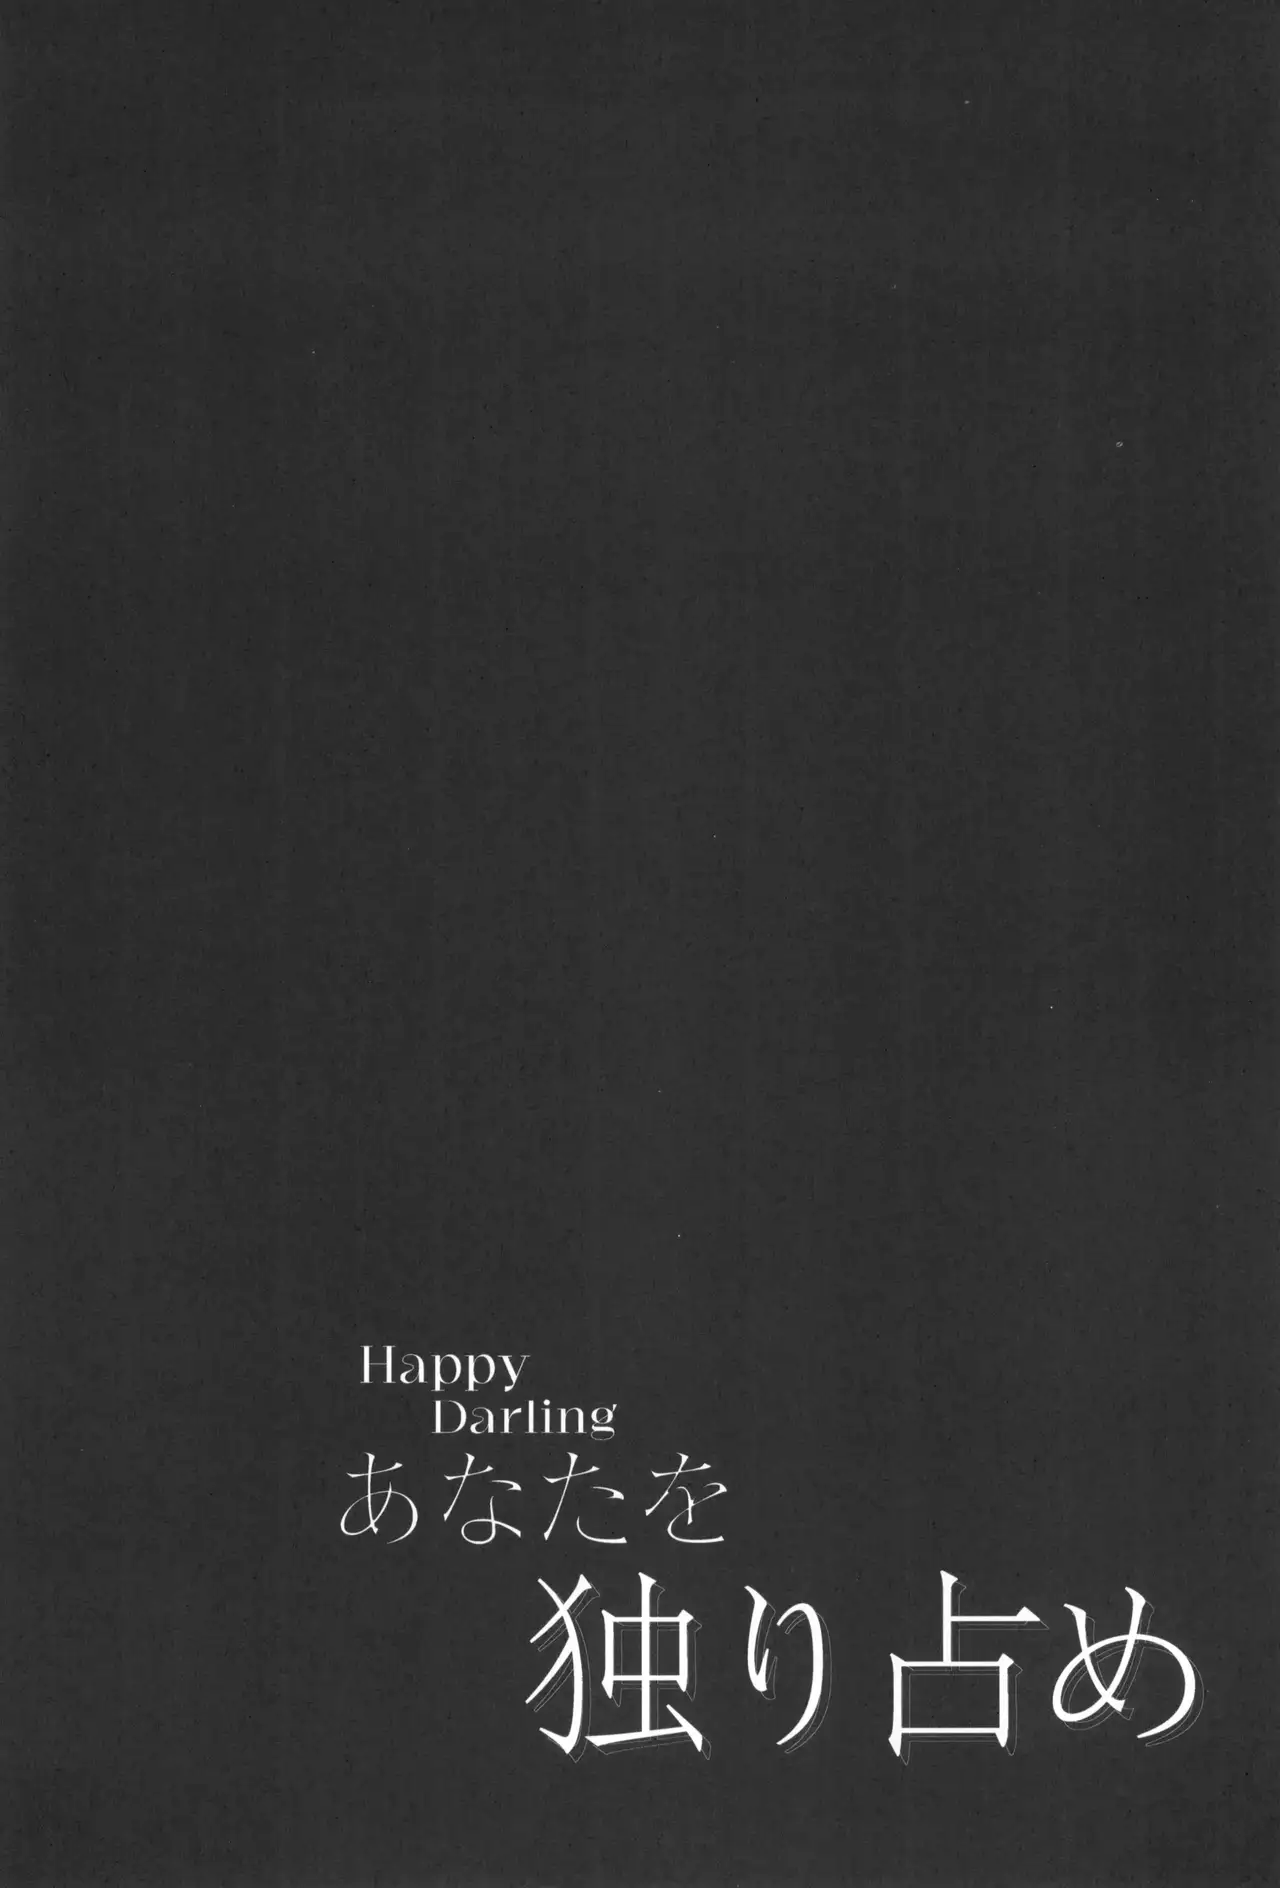 Happy
Darling
あなたを
独り占め